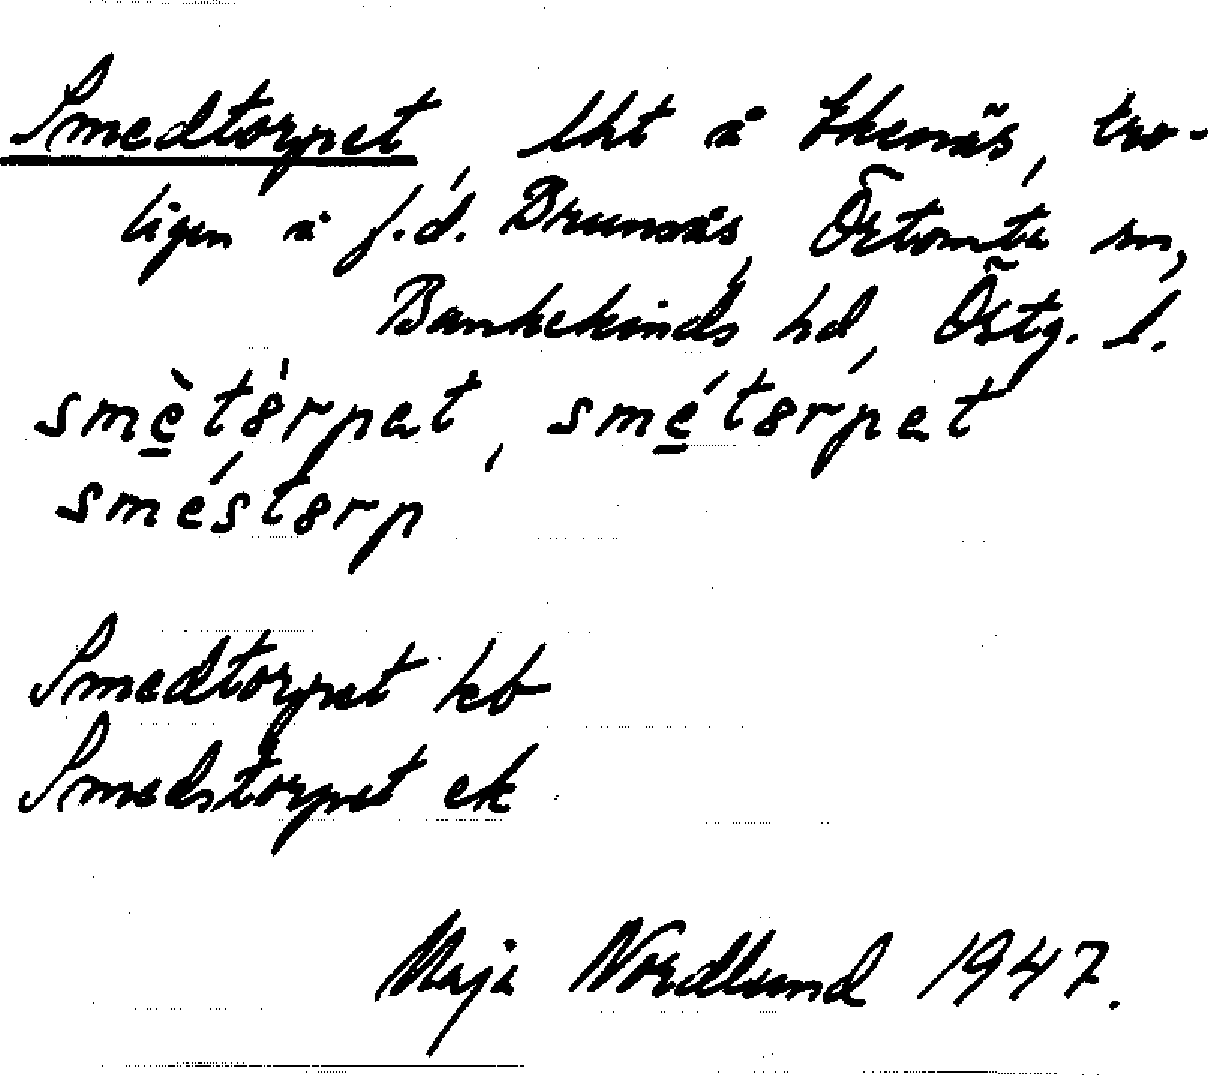 Smedtorpet, lht å Ekenäs, tro-
ligen å f.d. Brunnäs, Örtomta sn,
Bankekinds hd, Östg. l.
smètòrpet, smétórpet
sméstorp
Smedtorpet kb
Smedstorpet ek
Maja Nordlund 1947.